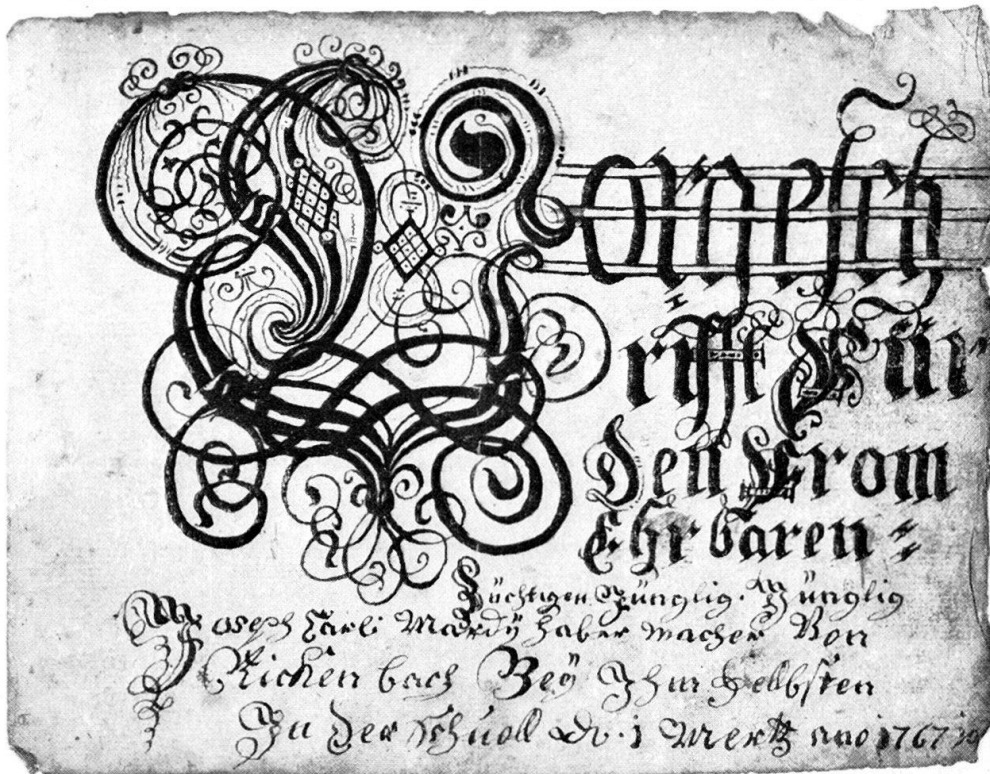 Vorgesch
rifft Für
Den From
Ehrbaren =
Züchtigen Jünglig. Jünglig
Joseph Carli Mardÿ haber macher Von
Rickenbach Beÿ Ihm selbsten
In der schuoll d. 1 Mertz ano 1767